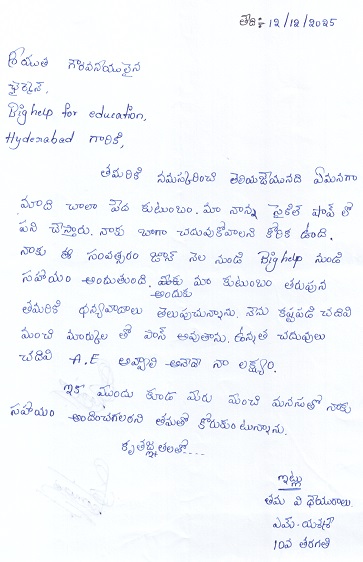 తేది:- 12/12/2025
శ్రీయుత గౌరవనీయులైన
ఛైర్మెన్,
Big help for education,
Hyderabad గారికి,
తమరికి నమస్కరించి తెలియజేయునది ఏమనగా
మాది చాలా పేద కుటుంబం. మా నాన్న సైకిల్ షాప్ లో
పని చేస్తారు. నాకు బాగా చదువుకోవాలని కోరిక ఉంది.
నాకు ఈ సంవత్సరం జూన్ నెల నుండి Big help నుండి
సహాయం అందుతుంది. అందుకు మా కుటుంబం తరుపున
తమరికి ధన్యవాదాలు తెలుపుచున్నాను. నేను కష్టపడి చదివి
మంచి మార్కుల తో పాస్ అవుతాను. ఉన్నత చదువులు
చదివి A.E అవ్వాలి అనేది నా లక్ష్యం.
ఇక ముందు కూడ మీరు మంచి మనసుతో నాకు
సహాయం అందించగలరని తమతో కోరుకుంటున్నాను.
కృతజ్ఞతలతో...
ఇట్లు
తమ విధేయురాలు.
ఎమ్. యశశ్రీ
10వ తరగతి